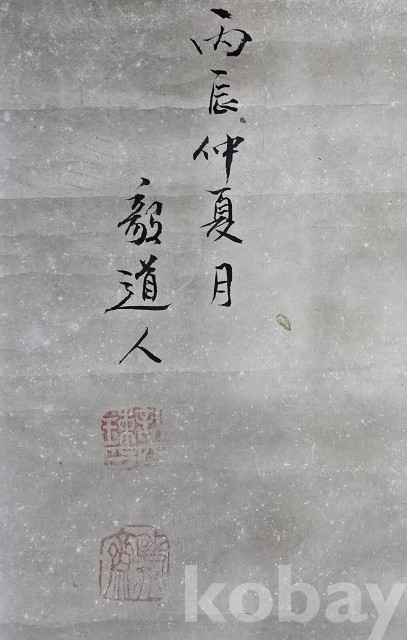 丙辰仲夏月
毅道人
kobay